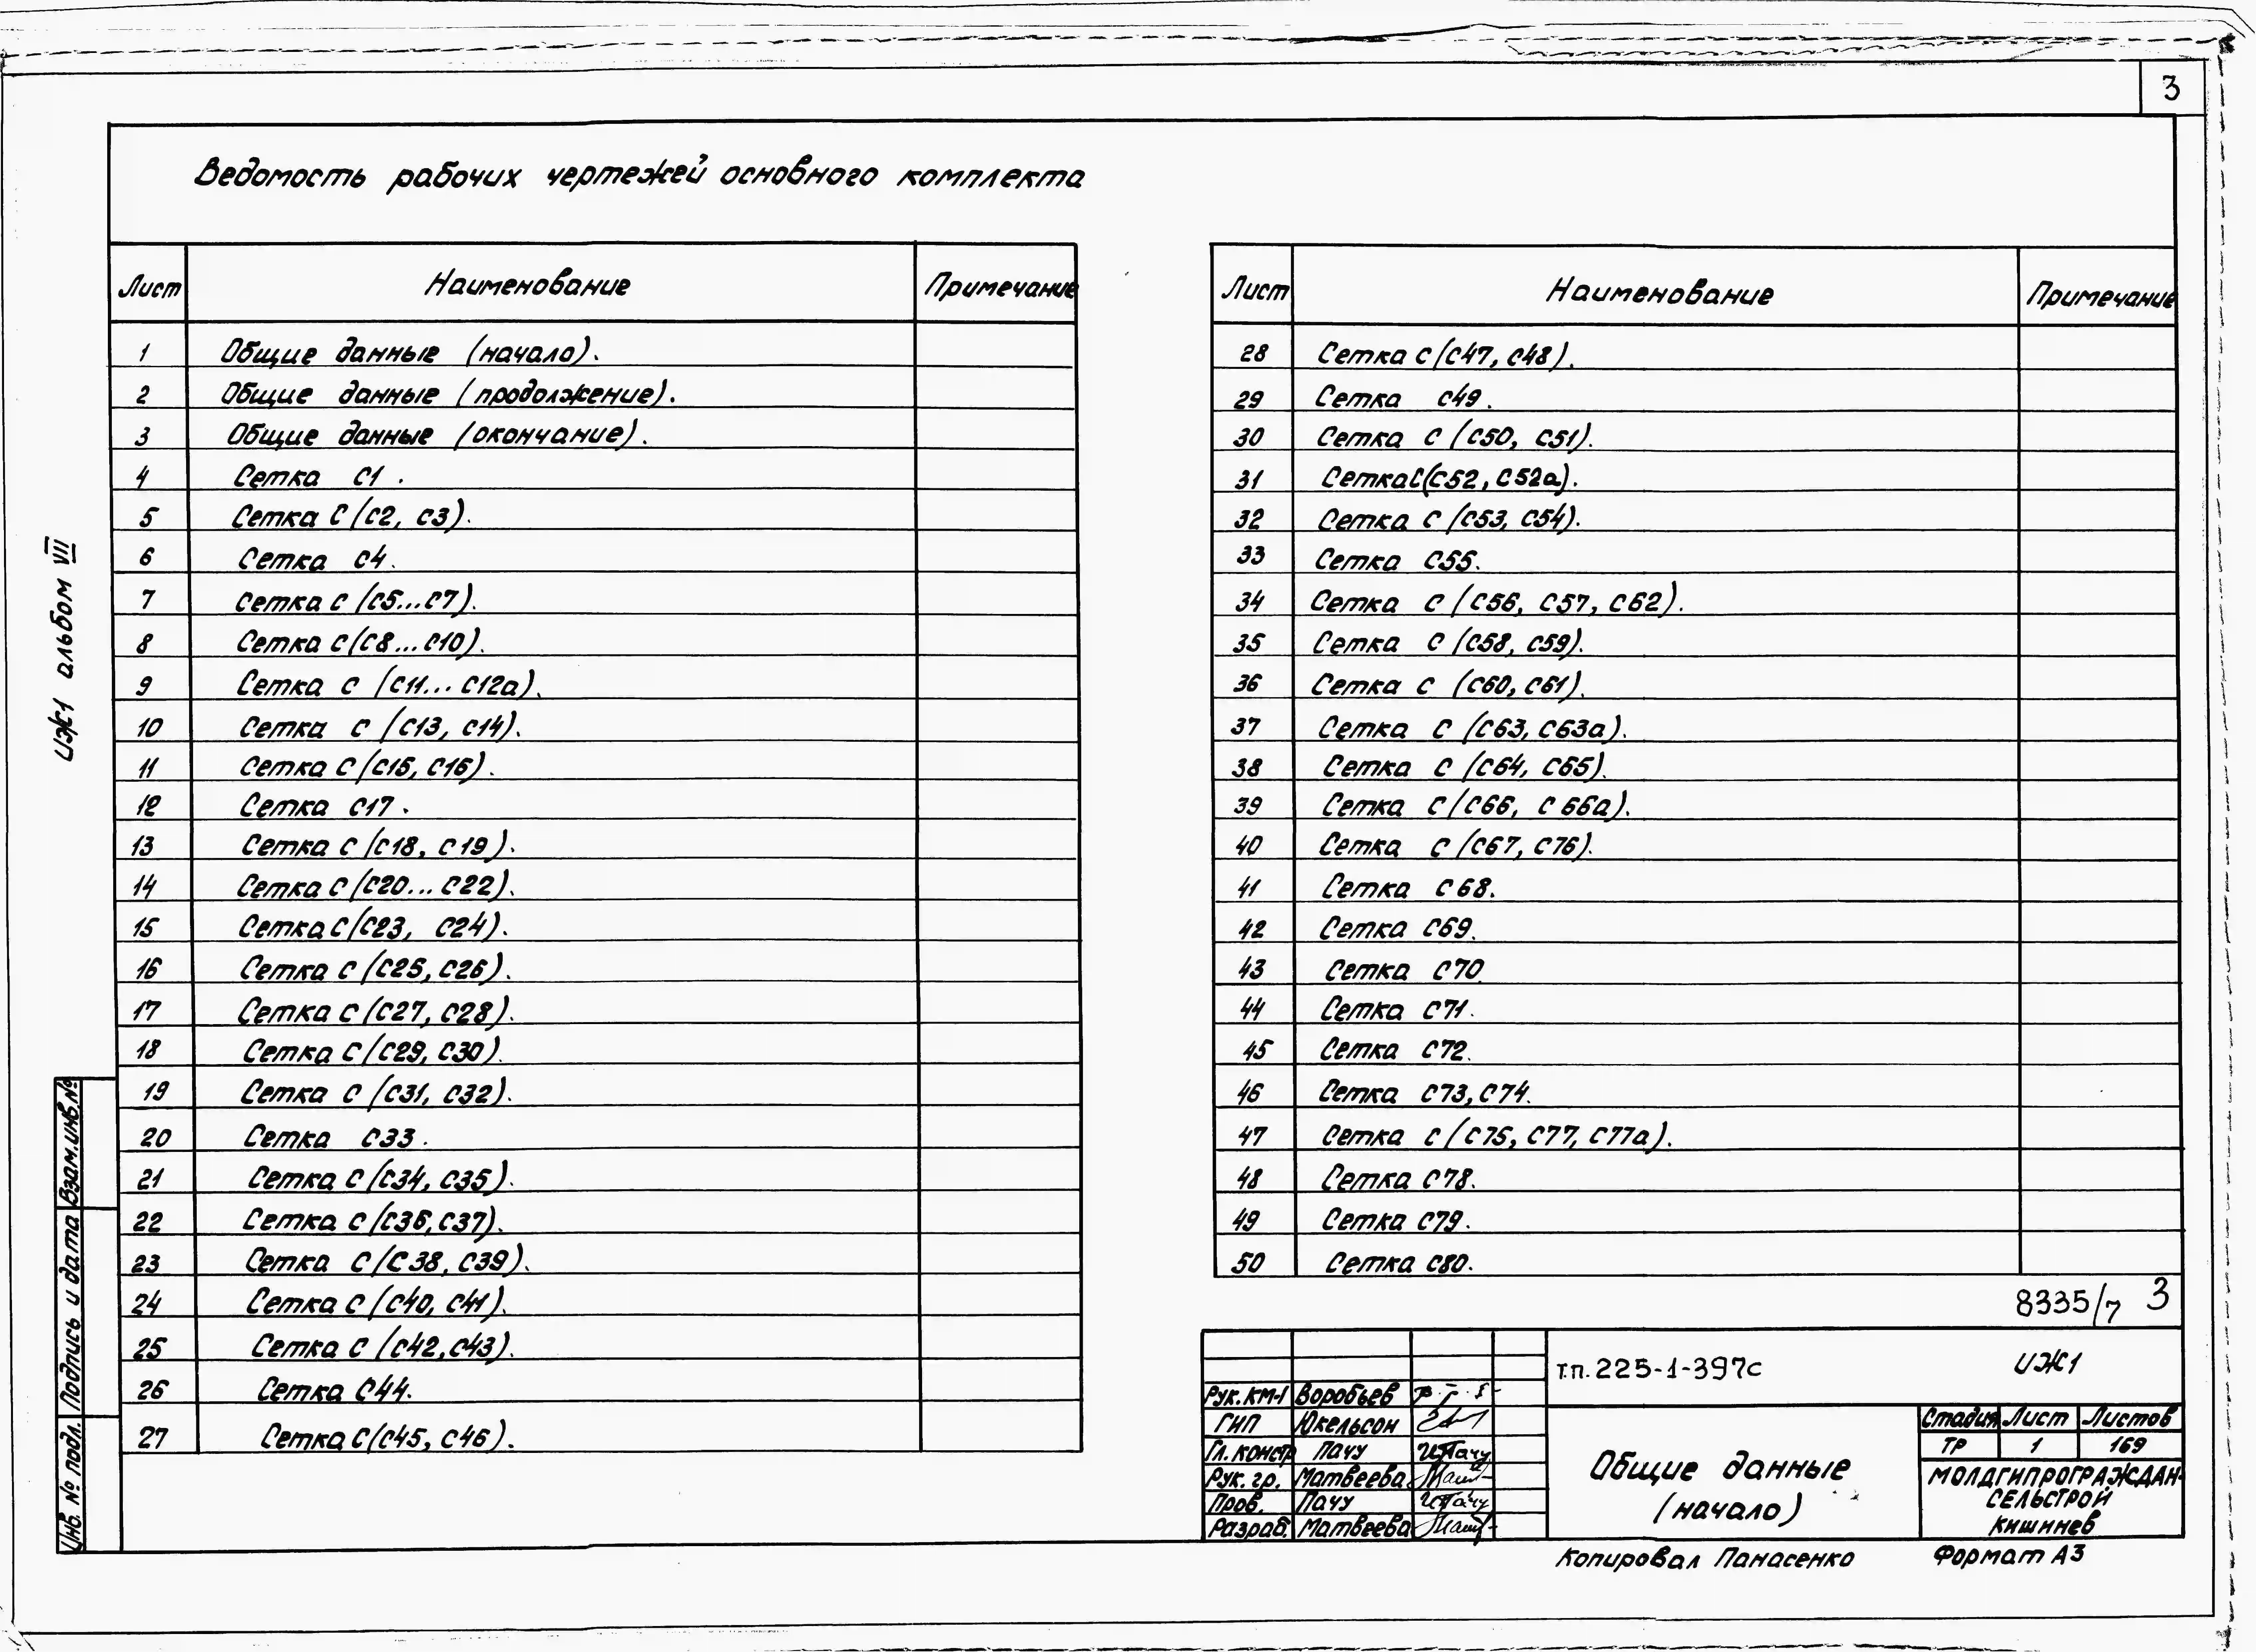 3
Ведомость рабочих чертежей основного комплекта
Лист Наименование Примечание
1 Общие данные (начало).
2 Общие данные (продолжение).
3 Общие данные (окончание).
4 Сетка С1.
5 Сетка С (С2, С3).
6 Сетка С4.
7 Сетка С (С5...С7).
8 Сетка С (С8...С10).
9 Сетка С (С11...С12а).
10 Сетка С (С13, С14).
11 Сетка С (С15, С16).
12 Сетка С17.
13 Сетка С (С18, С19).
14 Сетка С (С20...С22).
15 Сетка С (С23, С24).
16 Сетка С (С25, С26).
17 Сетка С (С27, С28).
18 Сетка С (С29, С30).
19 Сетка С (С31, С32).
20 Сетка С33.
21 Сетка С (С34, С35).
22 Сетка С (С36, С37).
23 Сетка С (С38, С39).
24 Сетка С (С40, С41).
25 Сетка С (С42, С43).
26 Сетка С44.
27 Сетка С (С45, С46).
Лист Наименование Примечание
28 Сетка С (С47, С48).
29 Сетка С49.
30 Сетка С (С50, С51).
31 Сетка С (С52, С52а).
32 Сетка С (С53, С54).
33 Сетка С55.
34 Сетка С (С56, С57, С62).
35 Сетка С (С58, С59).
36 Сетка С (С60, С61).
37 Сетка С (С63, С63а).
38 Сетка С (С64, С65).
39 Сетка С (С66, С66а).
40 Сетка С (С67, С76).
41 Сетка С68.
42 Сетка С69.
43 Сетка С70.
44 Сетка С71.
45 Сетка С72.
46 Сетка С73, С74.
47 Сетка С (С75, С77, С77а).
48 Сетка С78.
49 Сетка С79.
50 Сетка С80.
8335/7 3
ИЖ1 альбом VII
Взам.инв.№
Подпись и дата
Инв. № подл.
Рук.КМ-1 Воробьев
ГИП Юкельсон
Гл.констр Пачу
Рук. гр. Матвеева
Пров. Пачу
Разраб. Матвеева
т.п. 225-1-397с ИЖ1
Общие данные
(начало)
Стадия Лист Листов
ТР 1 169
МОЛДГИПРОГРАЖДАН-
СЕЛЬСТРОЙ
КИШИНЕВ
Копировал Панасенко Формат А3